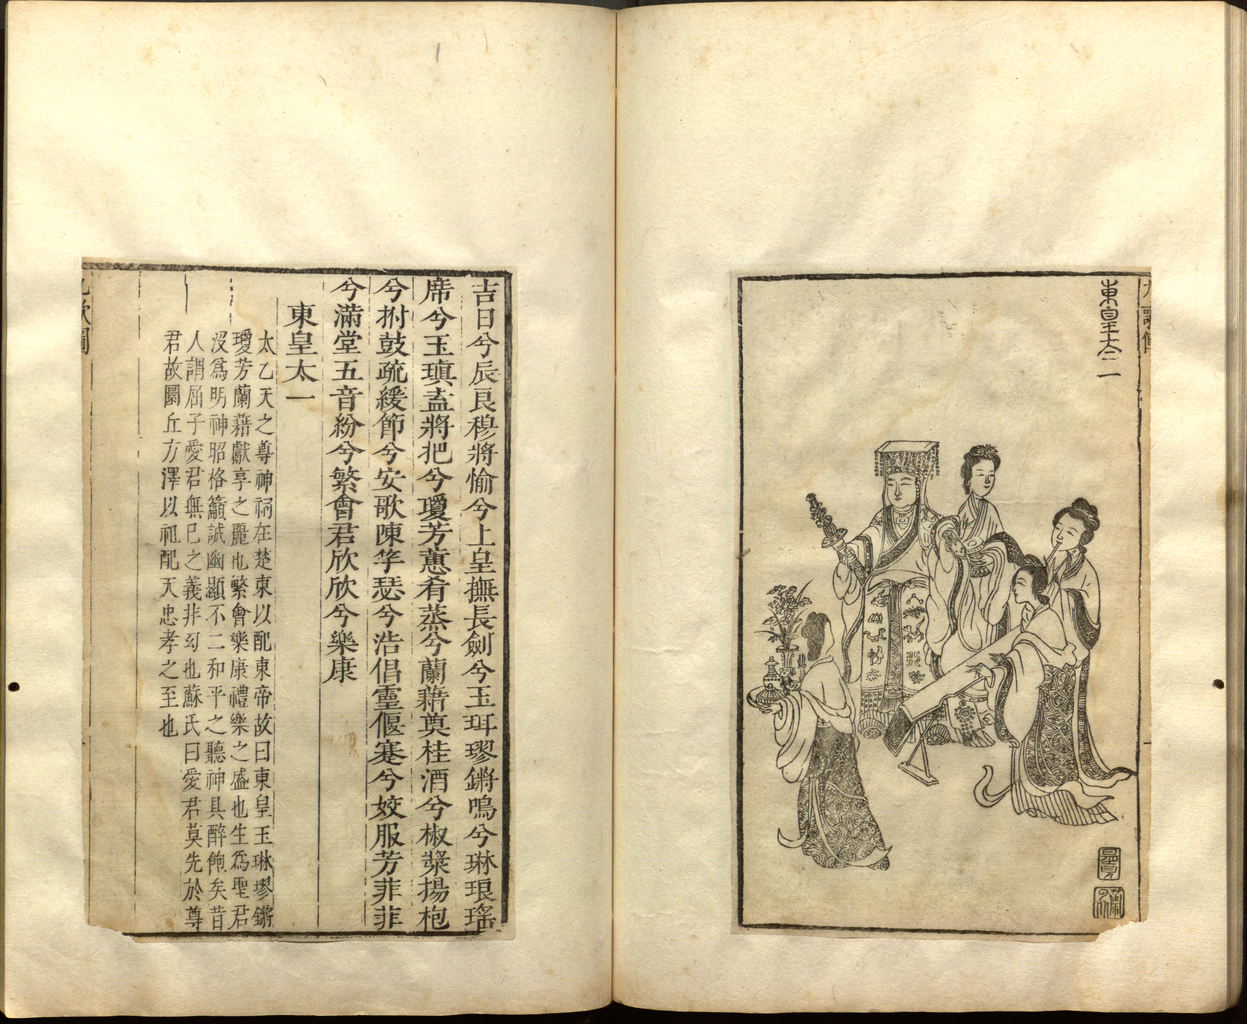 東皇太一
吉日兮辰良穆將愉兮上皇撫長劍兮玉珥璆鏘鳴兮琳琅瑤
席兮玉瑱盍將把兮瓊芳蕙肴蒸兮蘭藉奠桂酒兮椒漿揚枹
兮拊鼓疏緩節兮安歌陳竽瑟兮浩倡靈偃蹇兮姣服芳菲菲
兮滿堂五音紛兮繁會君欣欣兮樂康
東皇太一
太乙天之尊神祠在楚東以配東帝故曰東皇玉琳璆鏘
瓊芳蘭藉獻享之麗也繁會樂康禮樂之盛也生爲聖君
沒爲明神昭格籲誠幽顯不二和平之聽神具醉飽矣昔
人謂屈子愛君無已之義非也蘇氏曰愛君莫先於尊
君故圜丘方澤以祖配天忠孝之至也